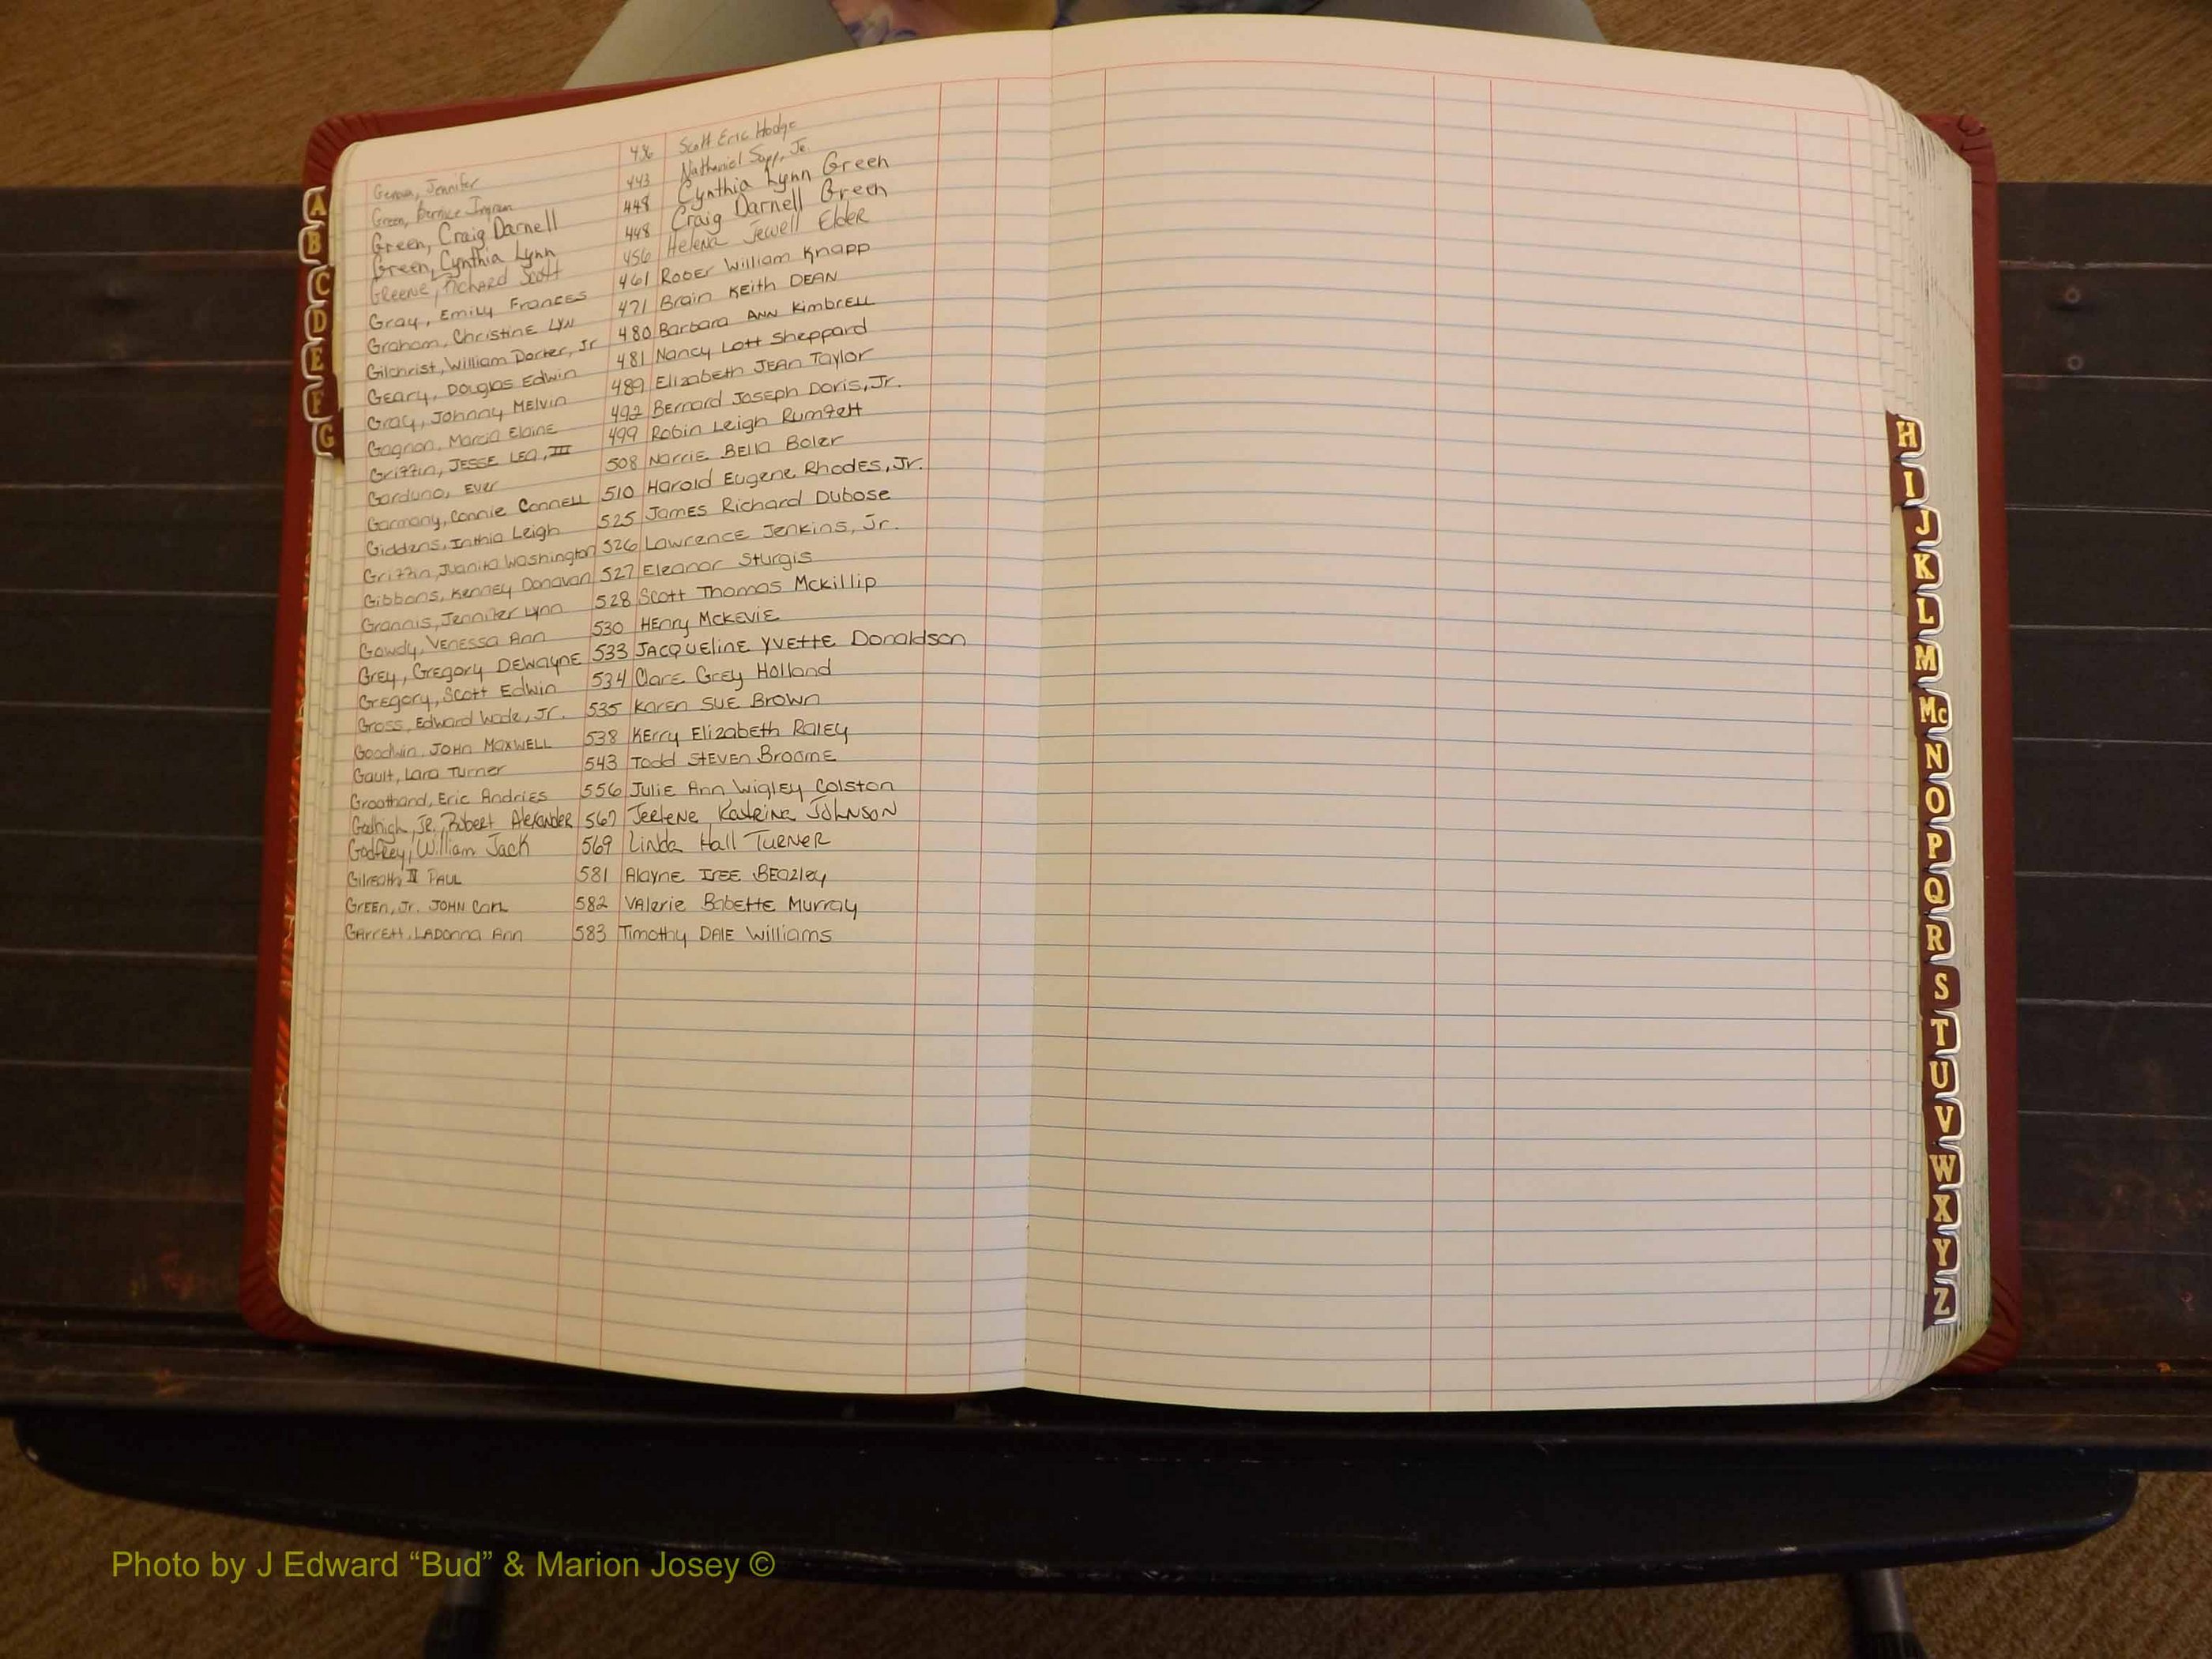 Jennifer 436 Scott Eric Hodge
Green, Bernice Ingram 443 Nathaniel Sapp, Jr.
Green, Craig Darnell 448 Cynthia Lynn Green
Green, Cynthia Lynn 448 Craig Darnell Green
Greene, Richard Scott 456 Helena Jewell Elder
Gray, Emily Frances 461 Rober William Knapp
Graham, Christine Lyn 471 Brain Keith Dean
Gilchrist, William Dorter, Jr 480 Barbara Ann Kimbrell
Geary, Douglas Edwin 481 Nancy Lott Sheppard
Gray, Johnny Melvin 489 Elizabeth Jean Taylor
Gagnon, Marcia Elaine 492 Bernard Joseph Doris, Jr.
Griffin, Jesse Lea, III 499 Robin Leigh
Garduno, Ever 508 Narrie Bella Boler
Garmany, Connie Connell 510 Harold Eugene Rhodes, Jr.
Giddens, Inthia Leigh 525 James Richard Dubose
Griffin, Juanita Washington 526 Lawrence Jenkins, Jr.
Gibbons, Kenney Donavan 527 Eleanor Sturgis
Grannis, Jennifer Lynn 528 Scott Thomas McKillip
Gowdy, Venessa Ann 530 Henry McKevie
Grey, Gregory Dewayne 533 Jacqueline Yvette Donaldson
Gregory, Scott Edwin 534 Clare Grey Holland
Gross, Edward Wade, Jr. 535 Karen Sue Brown
Goodwin, John Maxwell 538 Kerry Elizabeth Raley
Gault, Lara Turner 543 Todd Steven Broome
Groothand, Eric Andries 556 Julie Ann Wigley Colston
Jr., Robert Alexander 567 Jerlene Katrina Johnson
Godfrey, William Jack 569 Linda Hall Turner
Gilreath, II Paul 581 Alayne Iree Beazley
Green, Jr. John Carl 582 Valerie Babette Murray
Garrett, LaDonna Ann 583 Timothy Dale Williams
A
B
C
D
E
F
G
H
I
J
K
L
M
Mc
N
O
P
Q
R
S
T
U
V
W
X
Y
Z
Photo by J Edward “Bud” & Marion Josey ©